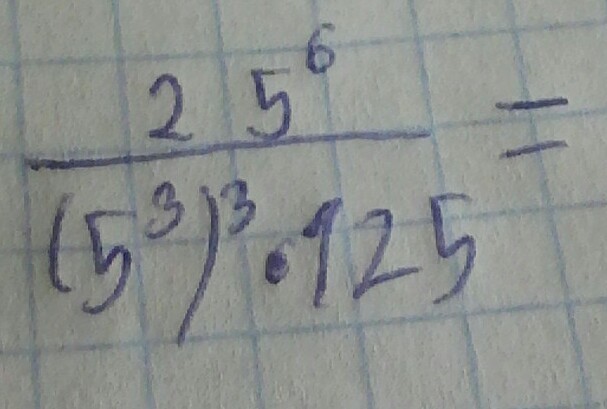 25⁶
(5³)³·125 =